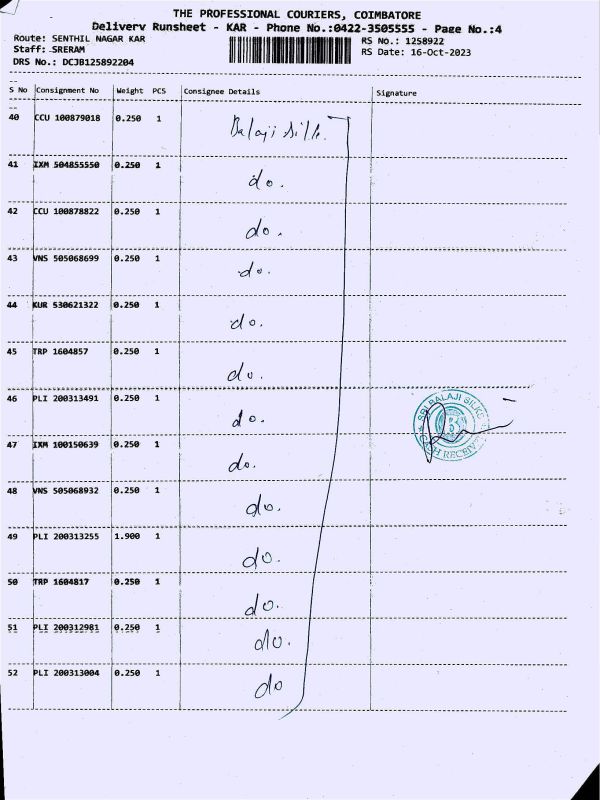 THE PROFESSIONAL COURIERS, COIMBATORE
Delivery Runsheet - KAR - Phone No.:0422-3505555 - Page No.:4
Route: SENTHIL NAGAR KAR RS No.: 1258922
Staff: SRERAM RS Date: 16-Oct-2023
DRS No.: DCJB125892204
S No Consignment No Weight PCS Consignee Details Signature
40 CCU 100879018 0.250 1 Balaji Silk
41 IXM 504855550 0.250 1 do.
42 CCU 100878822 0.250 1 do.
43 VNS 505068699 0.250 1 do.
44 KUR 530621322 0.250 1 do.
45 TRP 1604857 0.250 1 do.
46 PLI 200313491 0.250 1 do.
SRI BALAJI SILKS
B
CASH RECEIVED
47 IXM 100150639 0.250 1 do.
48 VNS 505068932 0.250 1 do.
49 PLI 200313255 1.900 1 do.
50 TRP 1604817 0.250 1 do.
51 PLI 200312981 0.250 1 do.
52 PLI 200313004 0.250 1 do